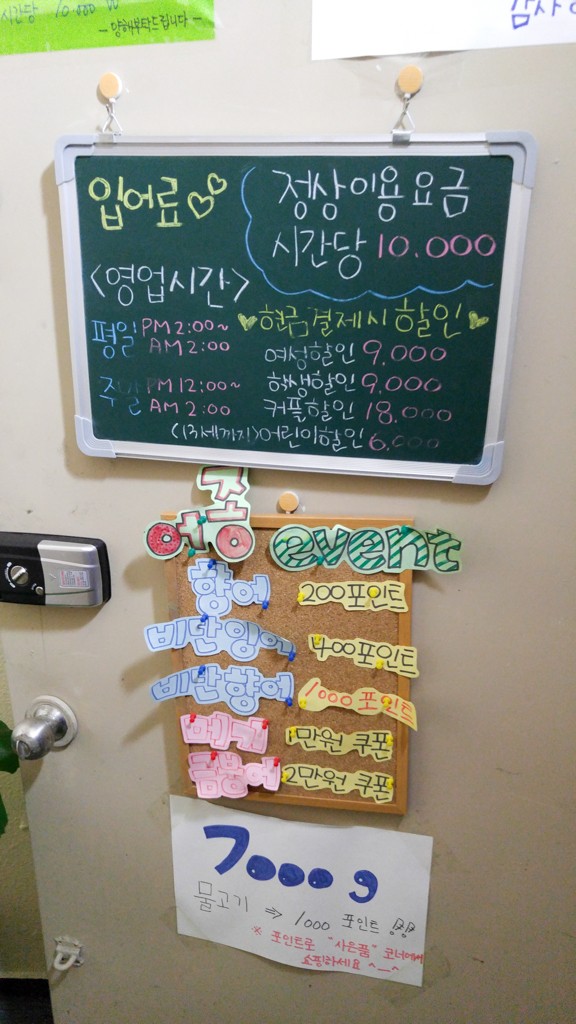 시간당 10.000
- 양해부탁드립니다 -
감사
입어료
정상이용요금
시간당 10.000
<영업시간>
평일 PM 2:00~
AM 2:00
주말 PM 12:00~
AM 2:00
현금결제시 할인
여성할인 9.000
학생할인 9.000
커플할인 18.000
(13세까지)어린이할인 6.000
어종
event
향어 200포인트
비단잉어 400포인트
비단향어 1000 포인트
메기 1만원 쿠폰
금붕어 2만원 쿠폰
7000 g
물고기 ⇒ 1000 포인트
※ 포인트로 "사은품" 코너에서
쇼핑하세요 ^__^